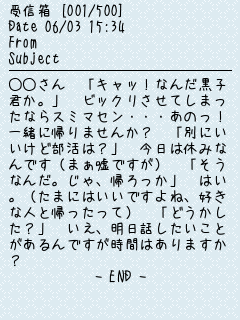 受信箱 [001/500]
Date 06/03 15:34
From
Subject
○○さん　「キャッ！なんだ黒子
君か。」　ビックリさせてしまっ
たならスミマセン・・・あのっ！
一緒に帰りませんか？　「別にい
いけど部活は？」　今日は休みな
んです（まぁ嘘ですが）　「そう
なんだ。じゃ、帰ろっか」　はい
。（たまにはいいですよね、好き
な人と帰ったって）　「どうかし
た？」　いえ、明日話したいこと
があるんですが時間はありますか
？
- END -